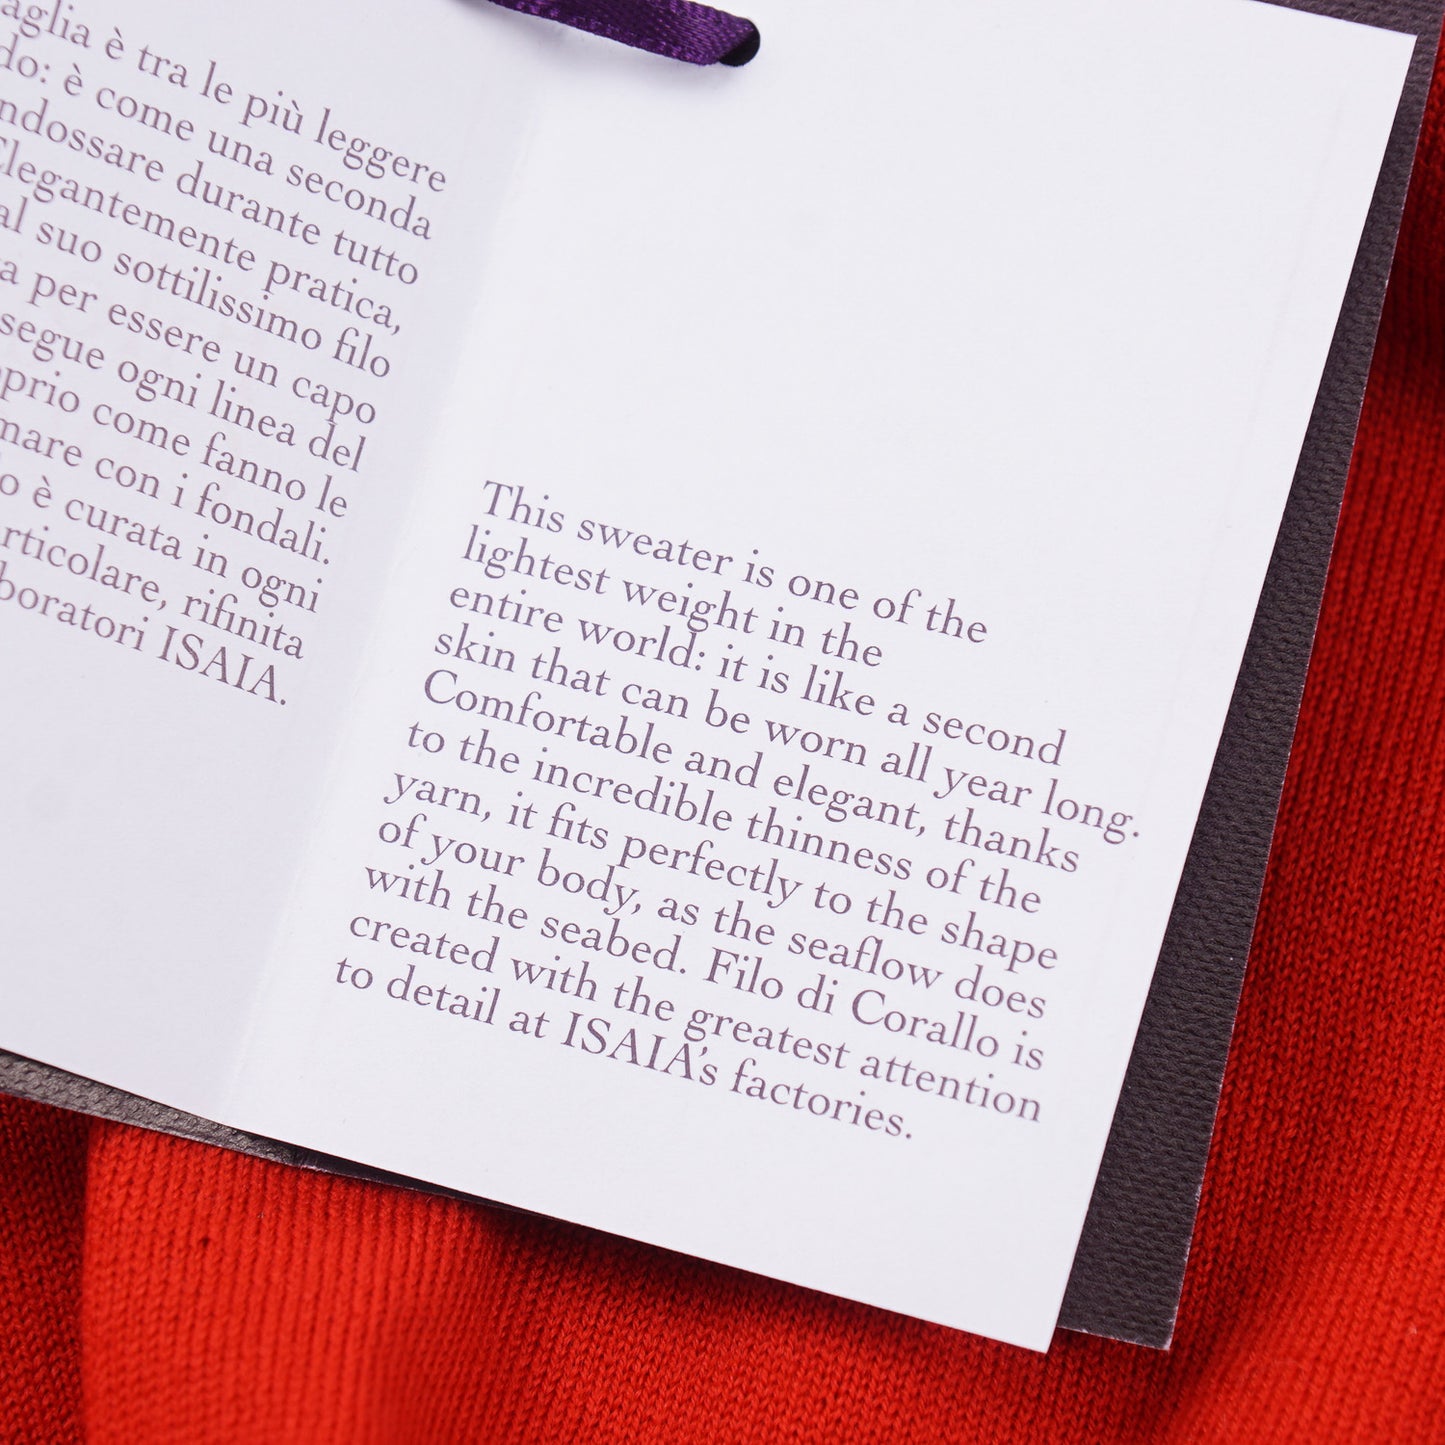 aglia è tra le più leggere
do: è come una seconda
ndossare durante tutto
Elegantemente pratica,
al suo sottilissimo filo
a per essere un capo
segue ogni linea del
oprio come fanno le
mare con i fondali.
o è curata in ogni
rticolare, rifinita
boratori ISAIA.
This sweater is one of the
lightest weight in the
entire world: it is like a second
skin that can be worn all year long.
Comfortable and elegant, thanks
to the incredible thinness of the
yarn, it fits perfectly to the shape
of your body, as the seaflow does
with the seabed. Filo di Corallo is
created with the greatest attention
to detail at ISAIA's factories.